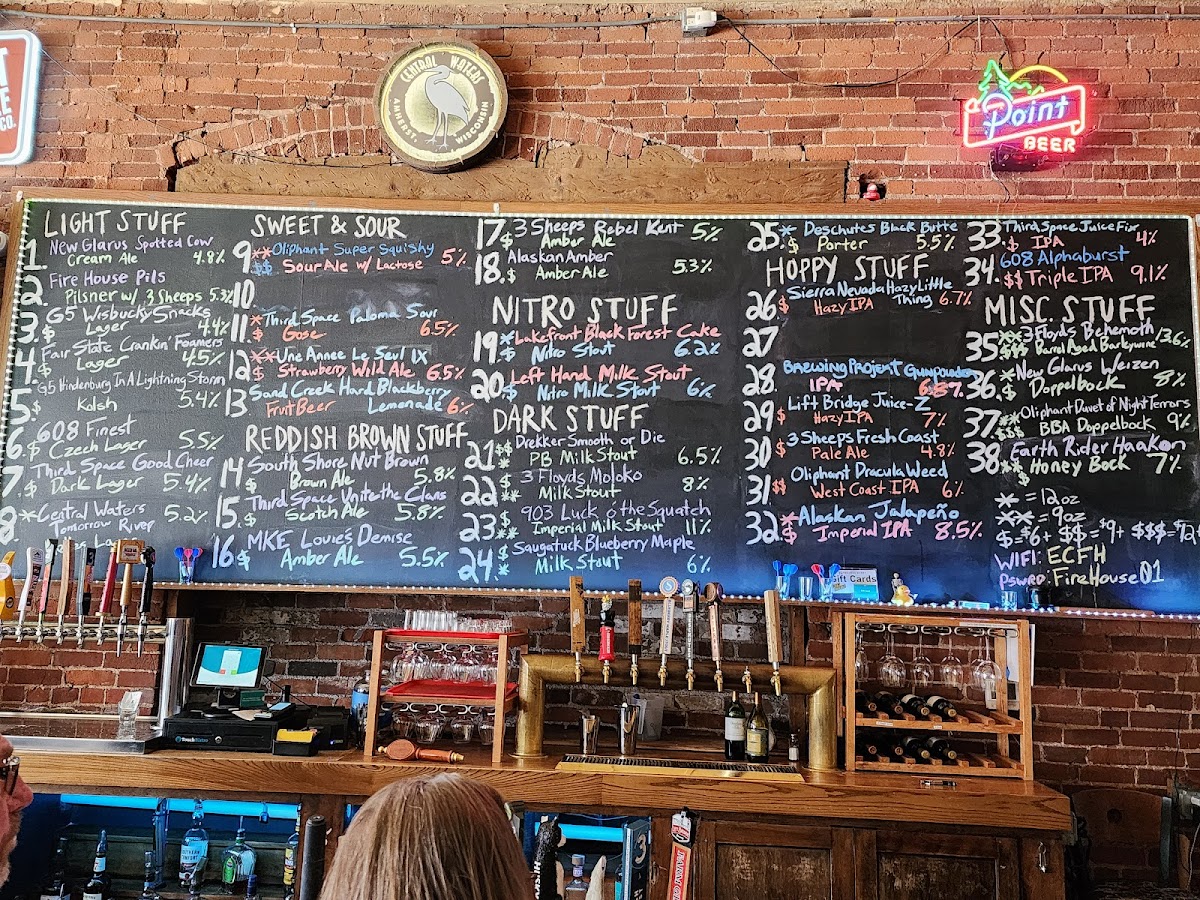 CENTRAL WATERS
AMHERST WISCONSIN
Point
BEER
LIGHT STUFF
1 New Glarus Spotted Cow
Cream Ale 4.8%
2 Fire House Pils
Pilsner w/ 3 Sheeps 5.3%
3 G5 Wisbucky Snacks
$ Lager 4.4%
4 Fair State Crankin' Foamers
$ Lager 4.5%
5 G5 Hindenburg In A Lightning Storm
$ Kolsh 5.4%
6 608 Finest
$ Czech Lager 5.5%
7 Third Space Good Cheer
$ Dark Lager 5.4%
8 *Central Waters 5.2%
Tomorrow River
SWEET & SOUR
9 **Oliphant Super Squishy 5%
$$ Sour Ale w/ Lactose
10
11 *Third Space Paloma Sour
$ Gose 6.5%
12 **Une Annee Le Seul IX
$ Strawberry Wild Ale 6.5%
13 Sand Creek Hard Blackberry
Fruit Beer Lemonade 6%
REDDISH BROWN STUFF
14 South Shore Nut Brown
Brown Ale 5.8%
15 Third Space Unite the Clans
$ Scotch Ale 5.8%
16 MKE Louie's Demise
$ Amber Ale 5.5%
17 3 Sheeps Rebel Kent 5%
$ Amber Ale
18 Alaskan Amber
$ Amber Ale 5.3%
NITRO STUFF
19 *Lakefront Black Forest Cake
$ Nitro Stout 6.2%
20 Left Hand Milk Stout
$ Nitro Milk Stout 6%
DARK STUFF
21 $$ Drekker Smooth or Die
** PB Milk Stout 6.5%
22 $ 3 Floyds Moloko
** Milk Stout 8%
23 $$ 903 Luck o' the Squatch
** Imperial Milk Stout 11%
24 $ Saugatuck Blueberry Maple
* Milk Stout 6%
25 * Deschutes Black Butte
$ Porter 5.5%
HOPPY STUFF
26 Sierra Nevada Hazy Little
$ Hazy IPA Thing 6.7%
27
28 Brewing Projekt Gunpowder
IPA
29 Lift Bridge Juice-Z
$ Hazy IPA 7%
30 3 Sheeps Fresh Coast
$ Pale Ale 4.8%
31 Oliphant Dracula Weed
$$ West Coast IPA 6%
32 *Alaskan Jalapeño
$ Imperial IPA 8.5%
33 Third Space Juice Fix
$ IPA 4%
34 608 Alphaburst
$$ Triple IPA 9.1%
MISC. STUFF
35 **3 Floyds Behemoth
$$$ Barrel Aged Barleywine 13.6%
36 *New Glarus Weizen
$ Doppelbock 8%
37 **Oliphant Duvet of Night Terrors
BBA Doppelbock 9%
38 Earth Rider Haakon
Honey Bock 7%
* = 12oz
** = 9oz
$=$6+ $$=$9+ $$$=$12+
WIFI: ECFH
PSWRD: FireHouse01
Gift Cards
TouchBistro
3